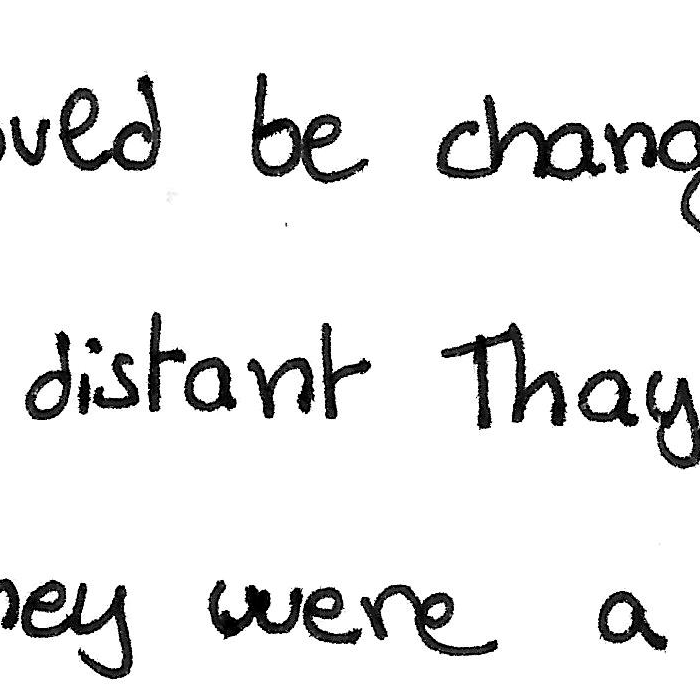 oved be chang
distant Thay
hey were a